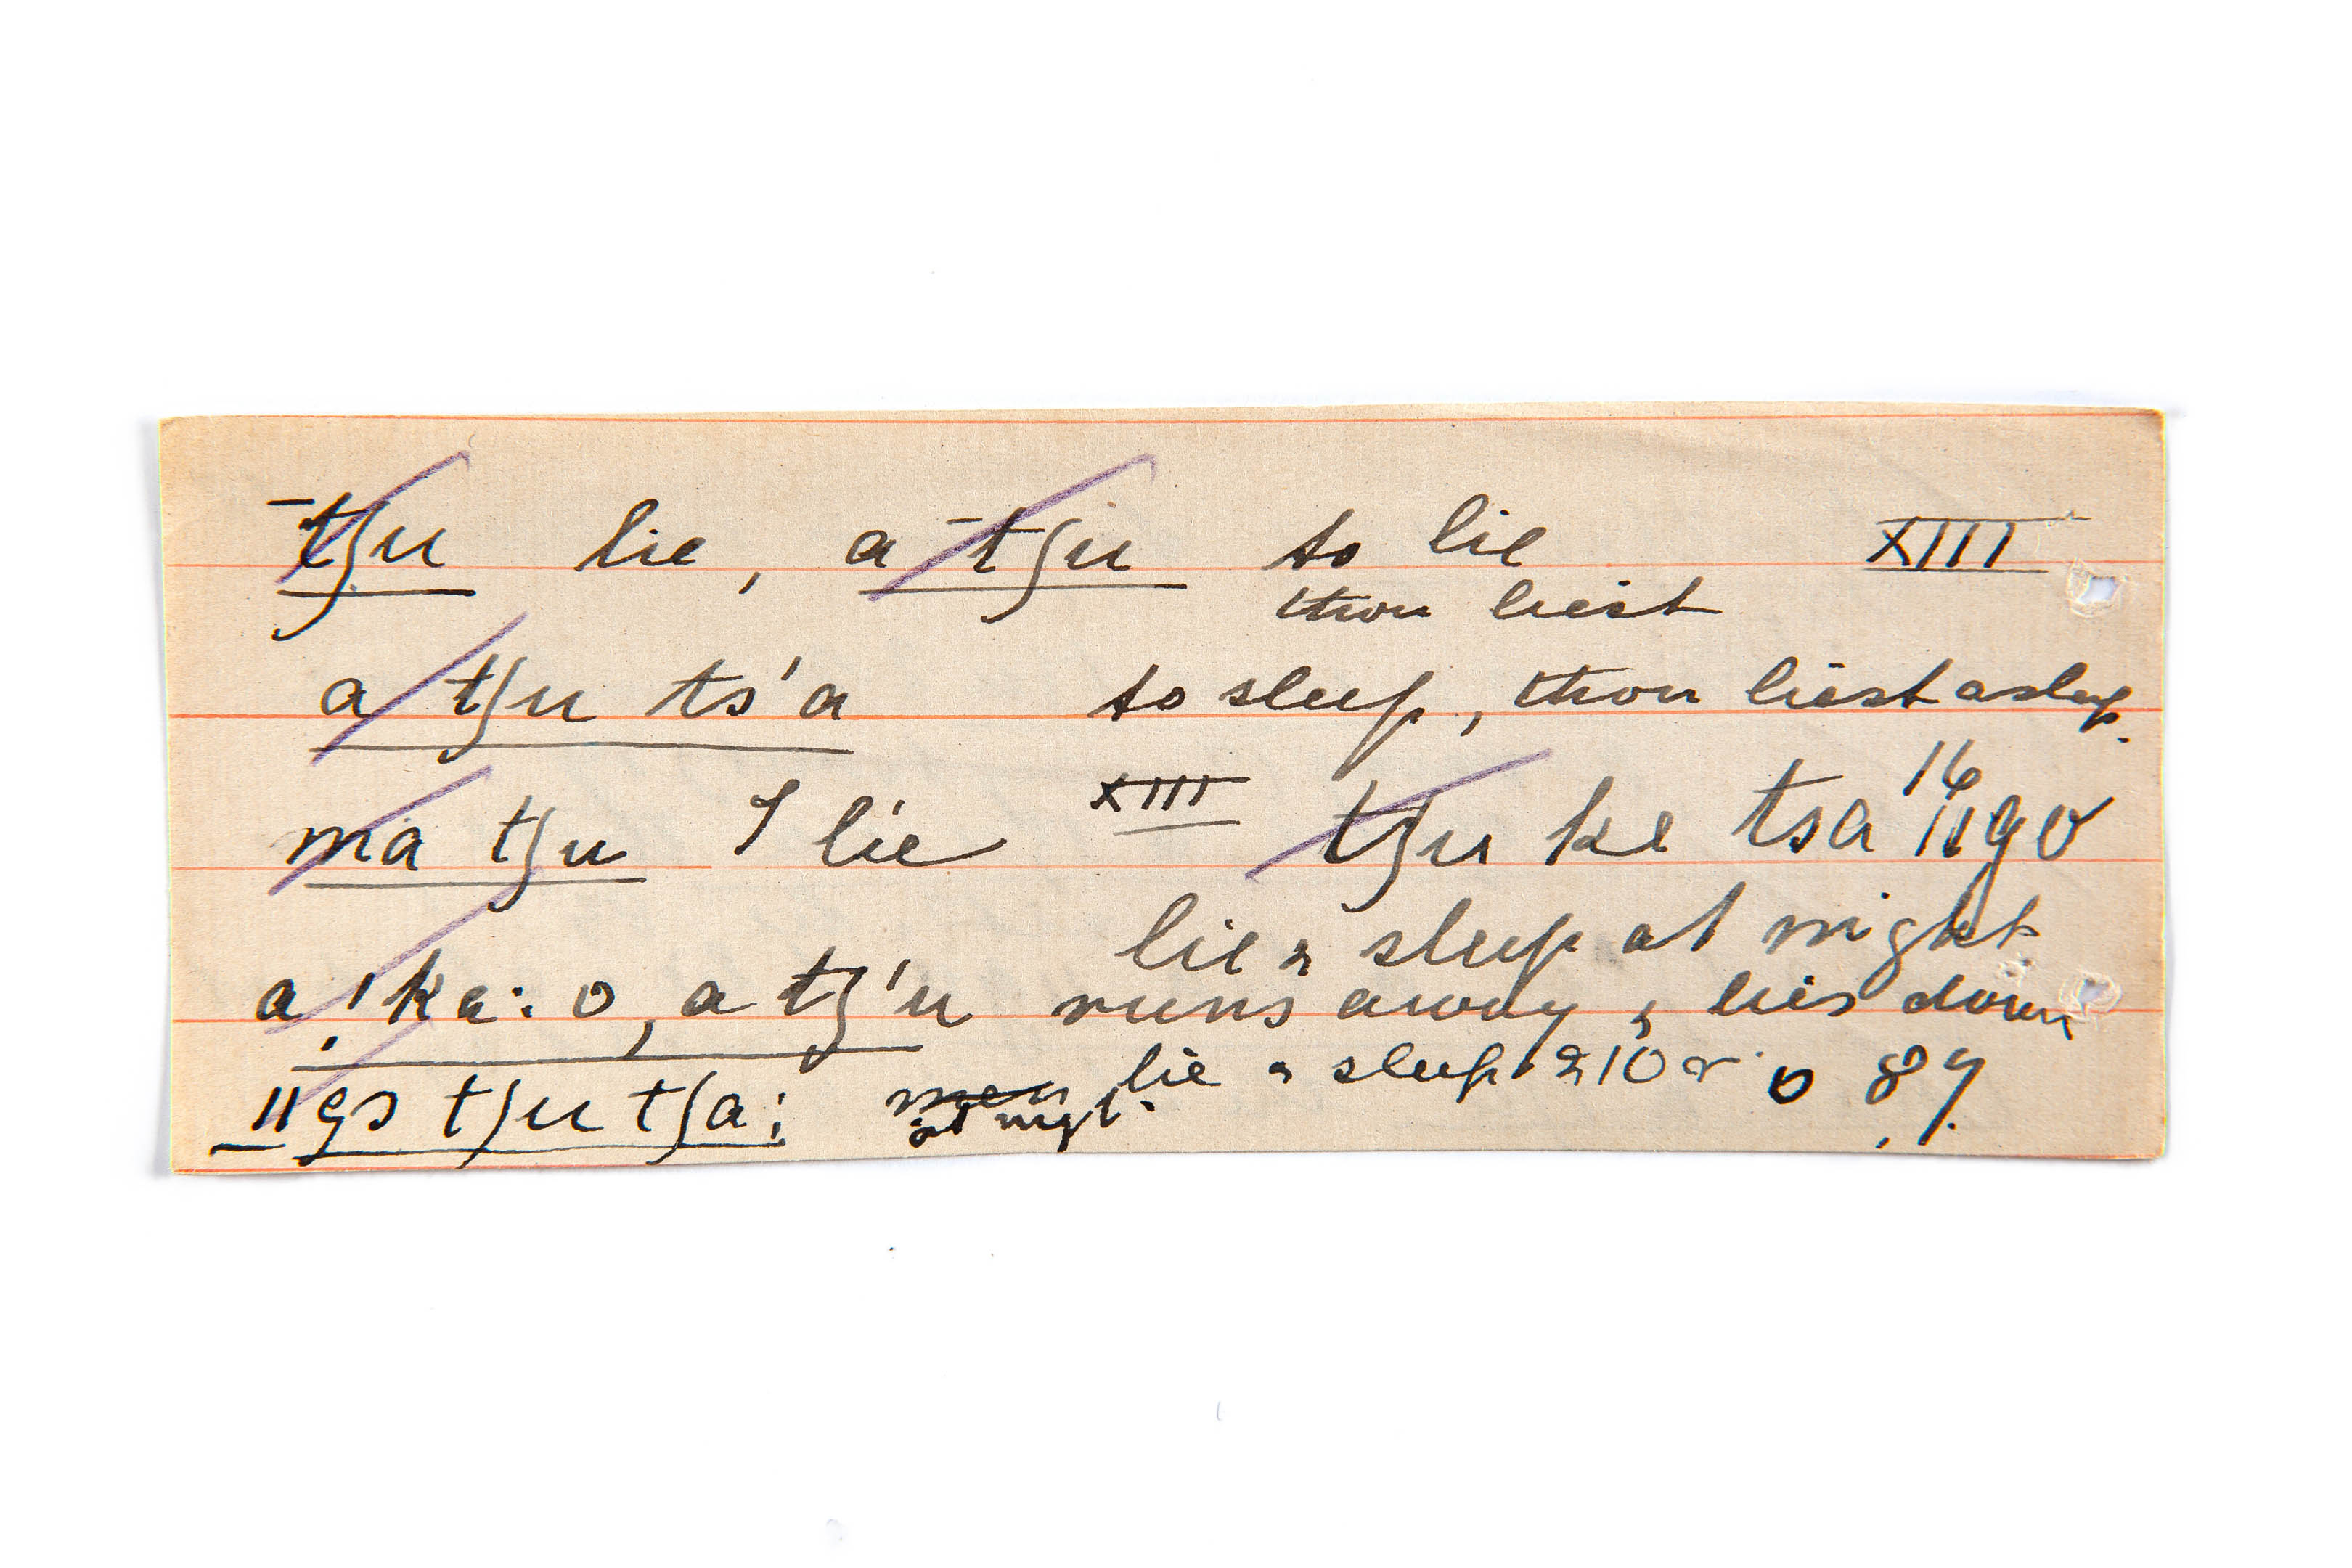 ¯tʃu lie, a ¯tʃu to lie XIII
thou liest
a tʃu ts'a to sleep, thou liest asleep.
ma tʃu I lie XIII tʃu ke tsa 16 ǁgo
lie & sleep at night
a !'ka: o, a tʃ'u runs away & lies down
ǁgɔ tʃu tʃa: lie & sleep o 89.
at nigt.